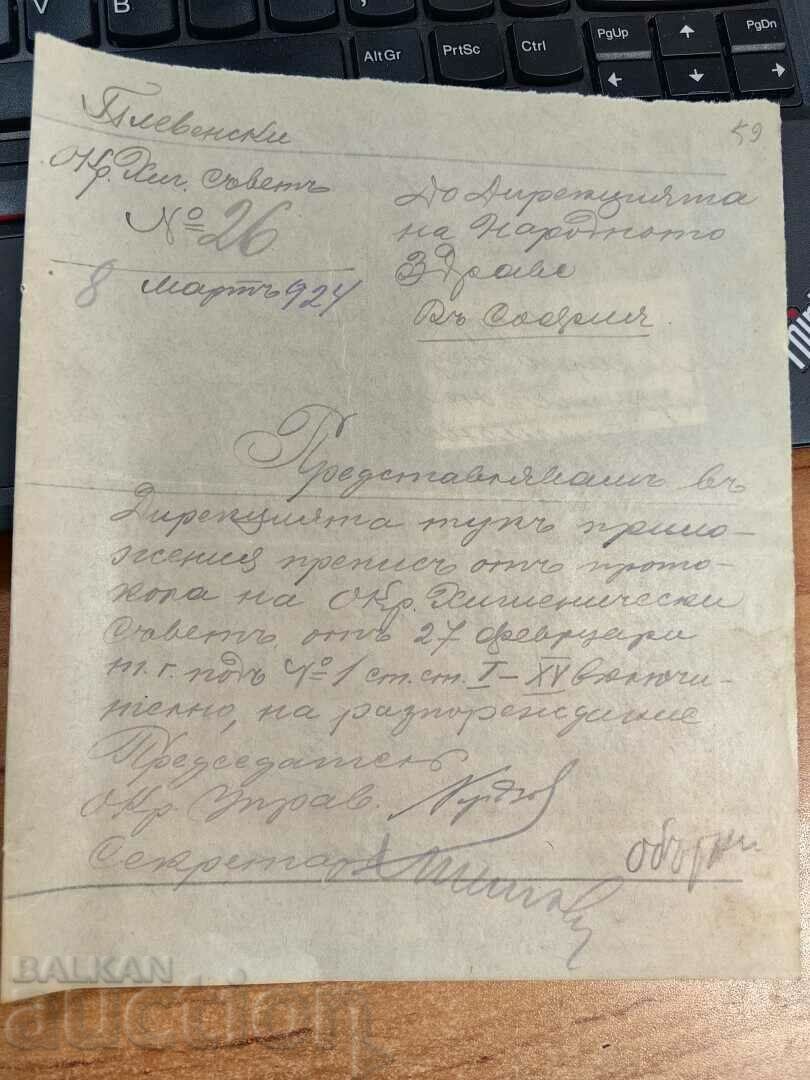 59
Плевенски
Окр. Хиг. Съветъ
№ 26
8 Мартъ 924
До Дирекцията
на Народното
Здраве
Въ София
Представлявамъ въ
Дирекцията тукъ прило-
жения преписъ отъ прото-
кола на Окр. Хигиенически
Съветъ отъ 27 февруари
т. г. подъ № 1 ст. ст. I – XV включи-
телно, на разпореждание
Председатель
Окр. Управ.
Секретарь
обърни
BALKAN
auction
V
B
AltGr
PrtSc
Ctrl
PgUp
PgDn
↑
←
↓
→